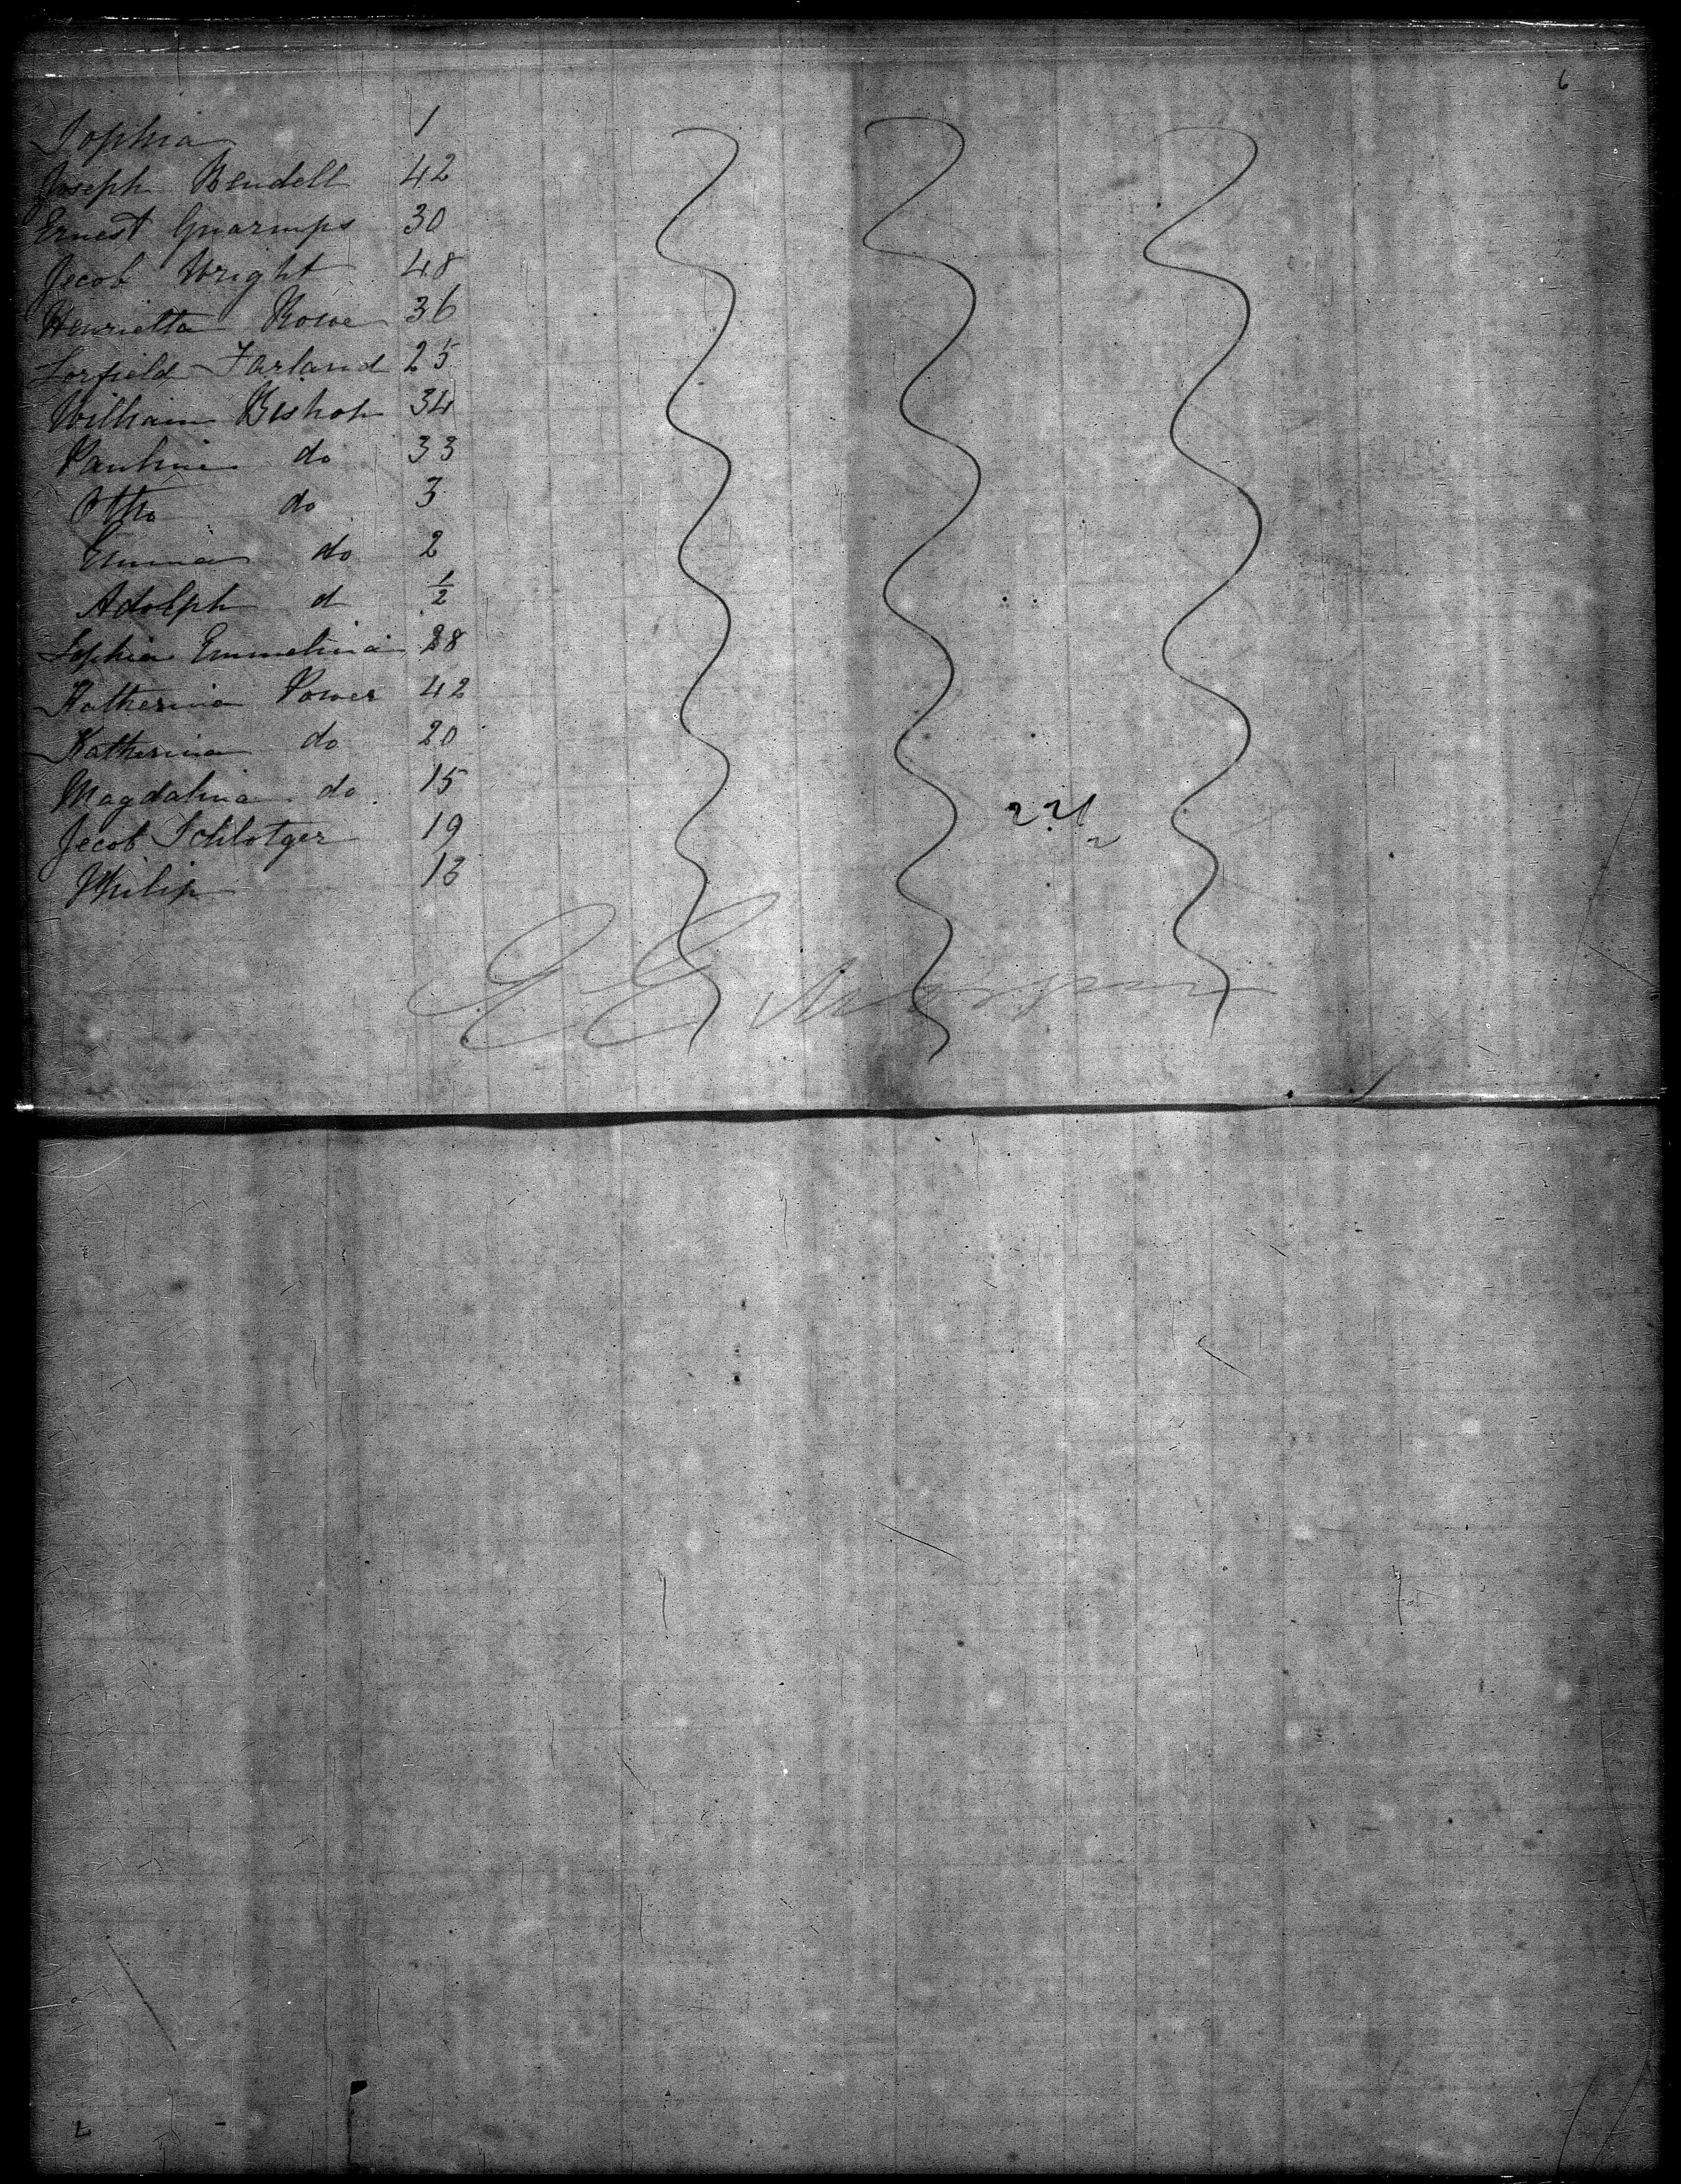 Sophia 1
Joseph Bendell 42
Ernest 30
Jecob Wright 48
Henrietta Rowe 36
Farland 25
William Bishop 34
Pauline do 33
Otto do 3
Emma do 2
Adolph d 1/2
Sophia Emmelina 28
Katherina Power 42
Katherina do 20
Magdalina do 15
Jecob Schlotger 19
Philip 13